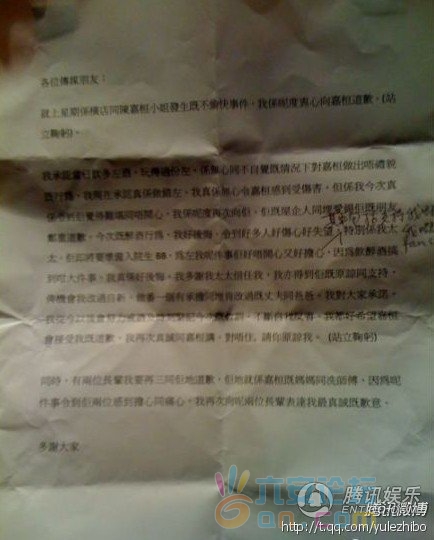 各位傳媒朋友：
就上星期係橫店同陳嘉桓小姐發生既不愉快事件，我係呢度衷心向嘉桓道歉。(站
立鞠躬)。
我承認當日飲多左酒，玩得過份左，係無心同不自覺既情況下對嘉桓做出唔禮貌
既行為，我現在承認真係做錯左。我真係無心令嘉桓感到受傷害，但係我今次真
係令到佢覺得難堪同唔開心，我係呢度再次向佢、佢既屋企人同埋愛錫佢既朋友
鄭重道歉。今次既醉酒行為，我好後悔，令到好多人好傷心好失望，特別係我太
太，佢即將要準備入院生 BB，為左我呢件事佢好唔開心又好擔心。因為飲醉酒搞
到咁大件事，我真係好後悔。我多謝我太太信任我，我亦得到佢既原諒同支持，
俾機會我改過自新，做番一個有承擔同埋有改過既丈夫同爸爸。我對大家承諾，
會接受我既道歉。我再次真誠同嘉桓講，對唔住。請你原諒我。(站立鞠躬)
同時，有兩位長輩我要再三同佢地道歉，佢地就係嘉桓既媽媽同洗師傅，因為呢
件事令到佢兩位感到擔心同痛心。我再次向呢兩位長輩表達我最真誠既歉意。
多謝大家
六安论坛
腾讯娱乐
腾讯微博
http://t.qq.com/yulezhibo